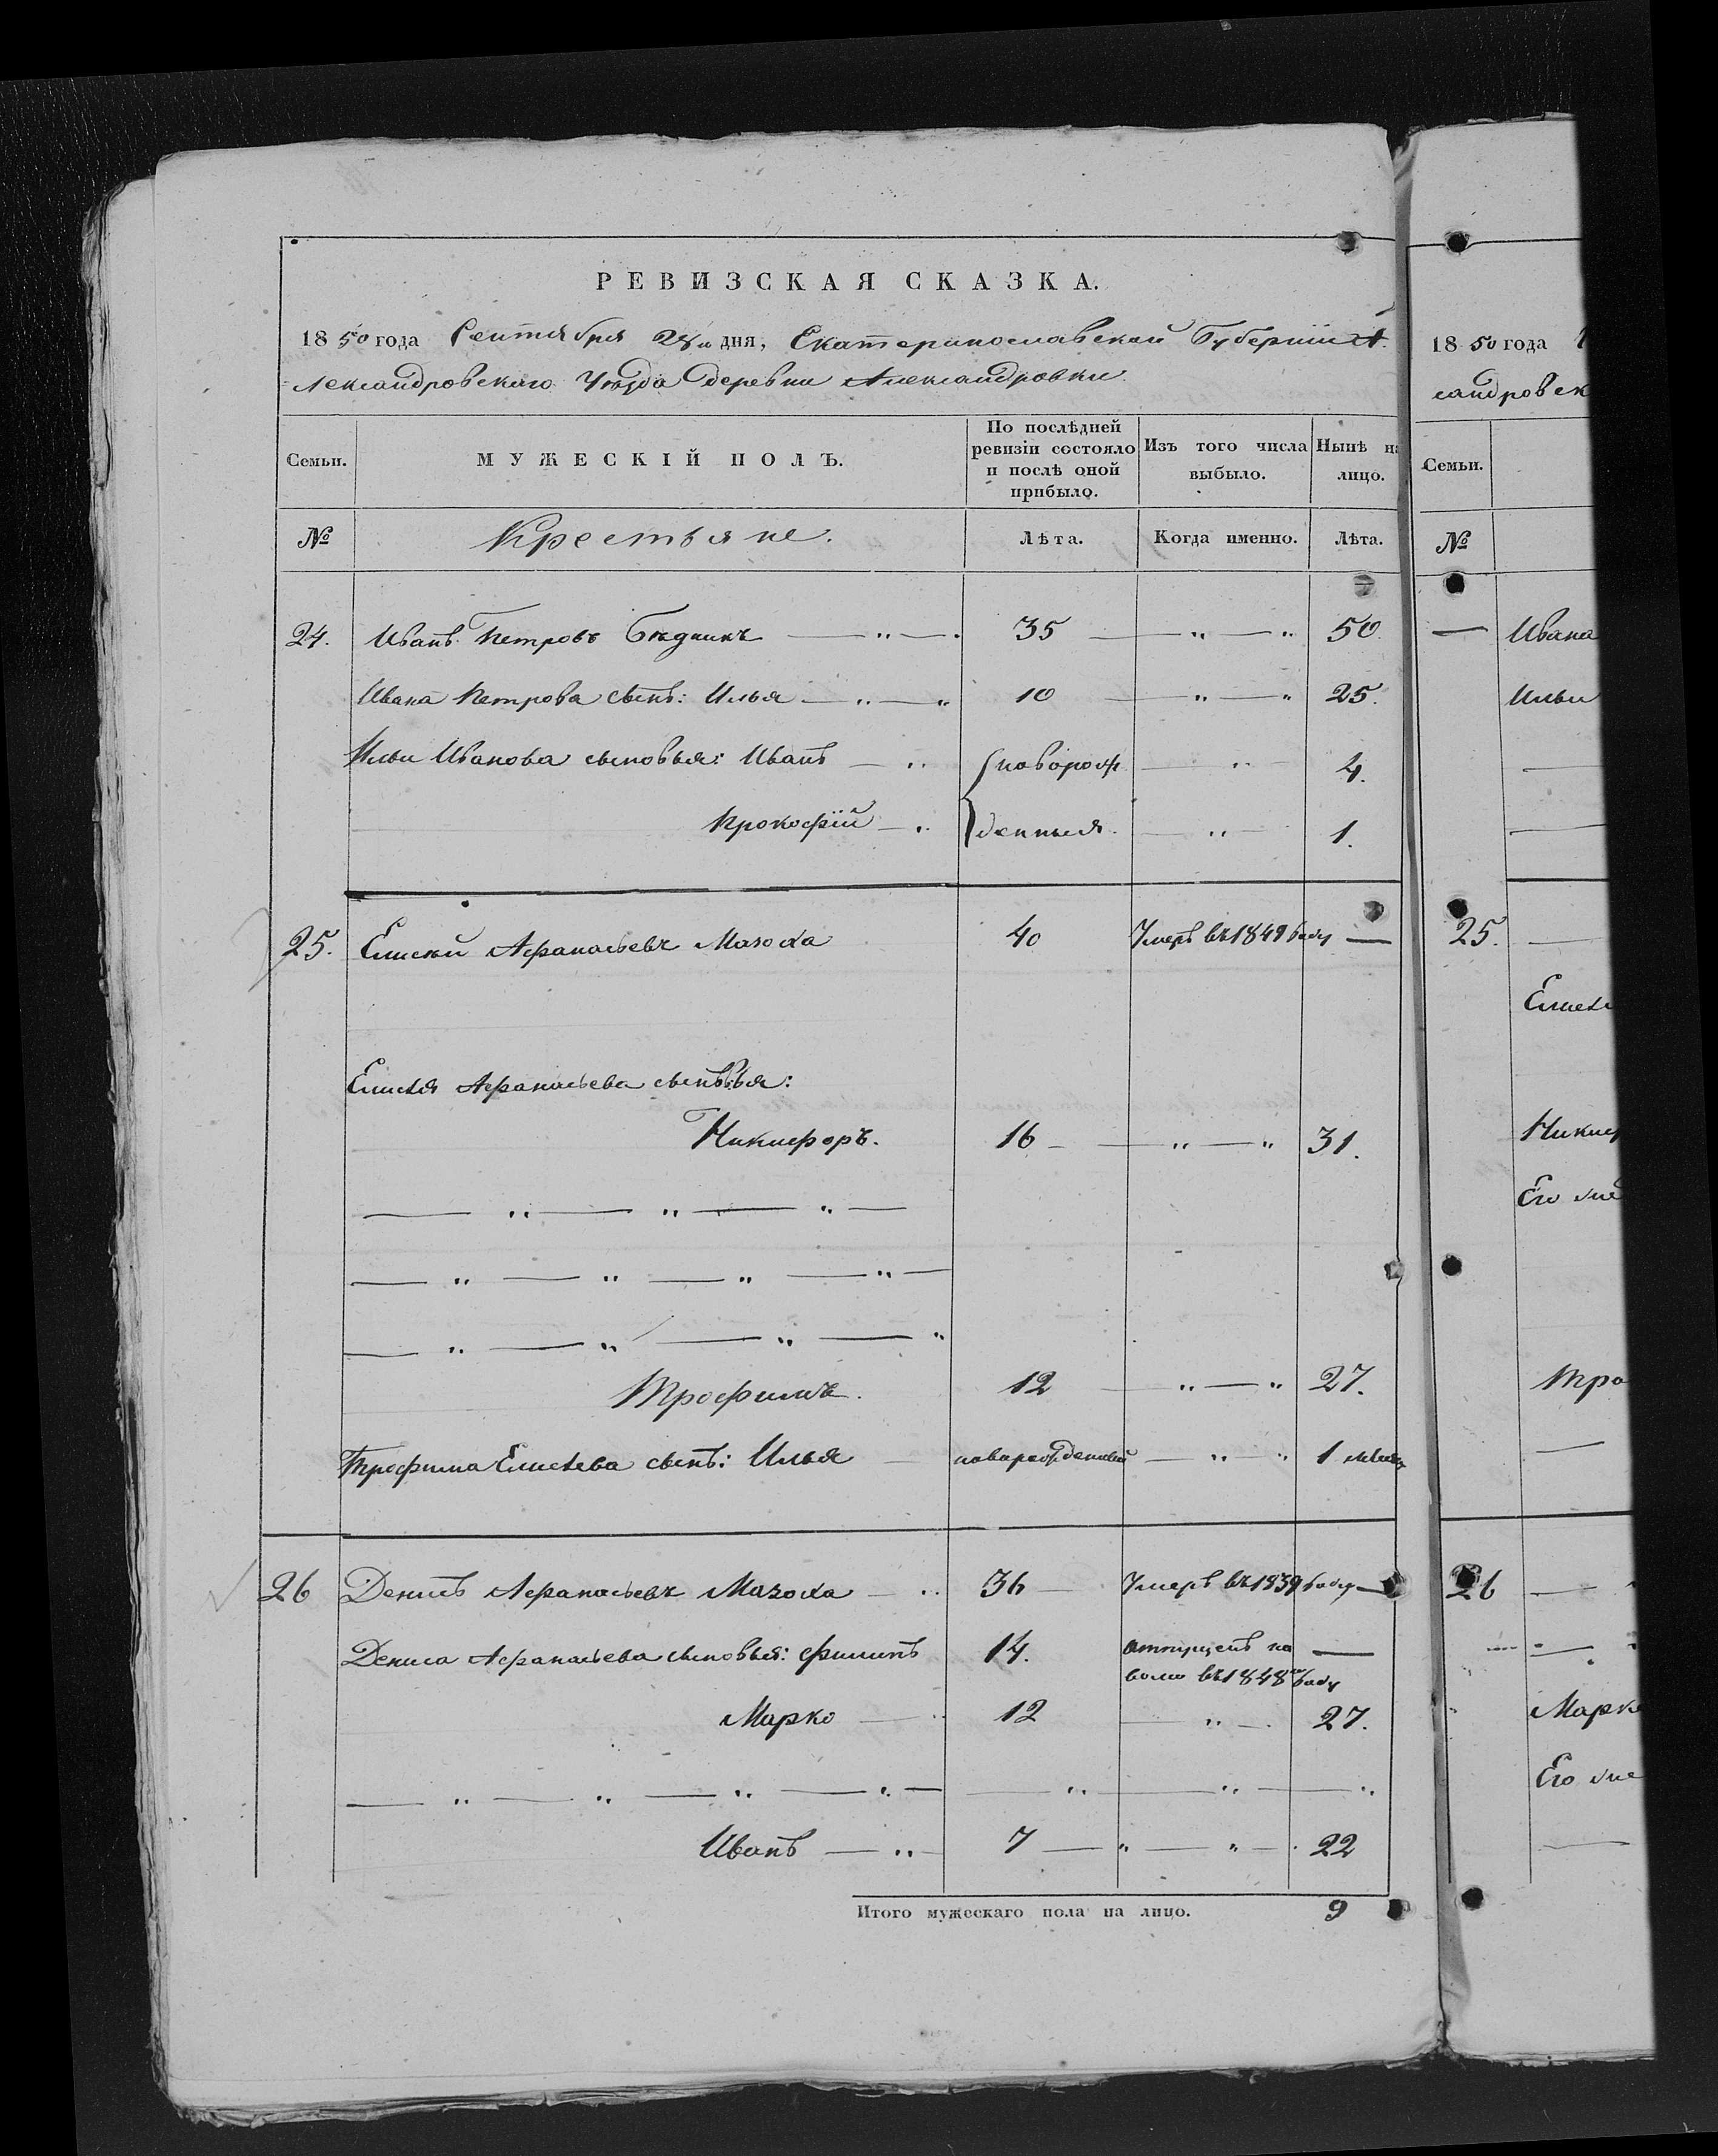 РЕВИЗСКАЯ СКАЗКА.
1850 года Сентября 28 дня, Екатеринославской Губернiи А
лександровскаго Уѣзда деревни Александровки
Семьи. МУЖЕСКIЙ ПОЛЪ. По послѣдней ревизiи состояло и послѣ оной прибыло. Изъ того числа выбыло. Нынѣ на лицо.
№ Крестьяне. Лѣта. Когда именно. Лѣта.
24. Иванъ Петровъ Бѣдникъ — „ — 35 — „ — „ 50.
Ивана Петрова сынъ: Илья — „ — „ 10 — „ — „ 25.
Ильи Иванова сыновья: Иванъ — „ новорож — „ — 4.
Прокофiй — „ денныя — „ — 1.
25. Елисей Афанасьевъ Мазоха 40 Умеръ въ 1849 году —
Елисея Афанасьева сыновья:
Никифоръ. 16 — — „ — „ 31.
— „ — „ — „ —
— „ — „ — „ — „ —
— „ — „ — „ — „
Трофимъ. 12 — „ — „ 27.
Трофима Елисеева сынъ: Илья — новорожденный — „ — „ 1 мѣсяц
26 Денисъ Афанасьевъ Мазоха — „ 36 — Умеръ въ 1839 году —
Дениса Афанасьева сыновья: Филипъ 14. отпущенъ на —
волю въ 1848 году
Марко — „ 12 — „ — 27.
— „ — „ — „ — „ — — „ — „ — „
Иванъ — „ — 7 — „ — „ — 22
Итого мужескаго пола на лицо. 9
1850 года
сандровск
Семьи.
№
— Ивана
Ильи
—
—
25. —
Елисе
Никиф
Его
Тро
—
26 —
—
Марк
Его
—